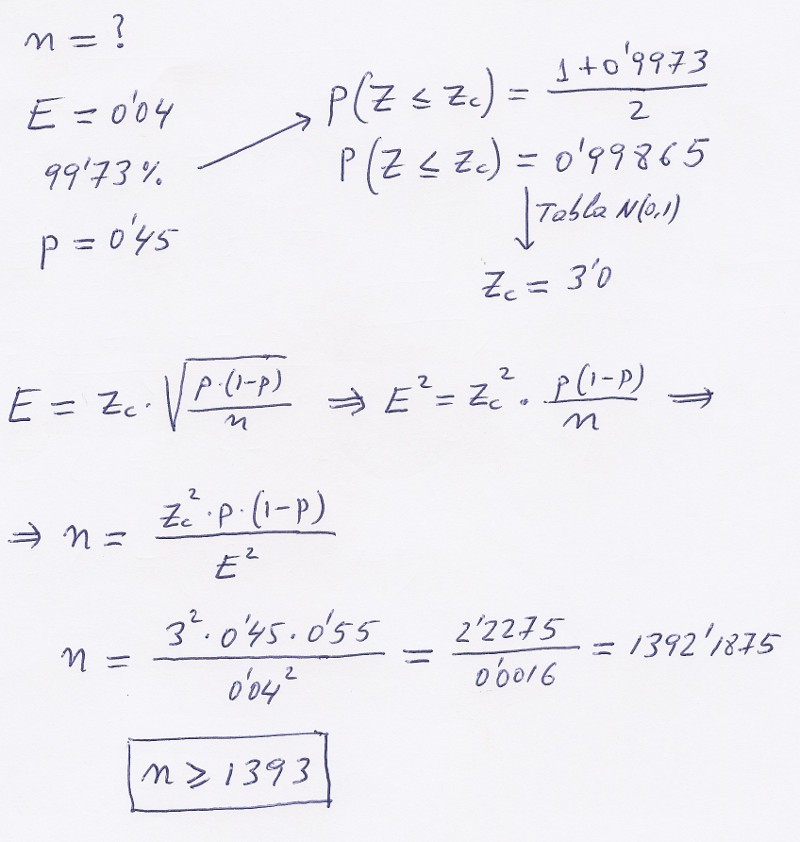 n = ?
E = 0'04
99'73%
p = 0'45
P(Z ≤ Zc) = (1+0'9973)/2
P(Z ≤ Zc) = 0'99865
↓ Tabla N(0,1)
Zc = 3'0
E = Zc · √(p·(1-p)/n) ⇒ E² = Zc² · p(1-p)/n ⇒
⇒ n = Zc²·p·(1-p)/E²
n = 3²·0'45·0'55/0'04² = 2'2275/0'0016 = 1392'1875
n ≥ 1393